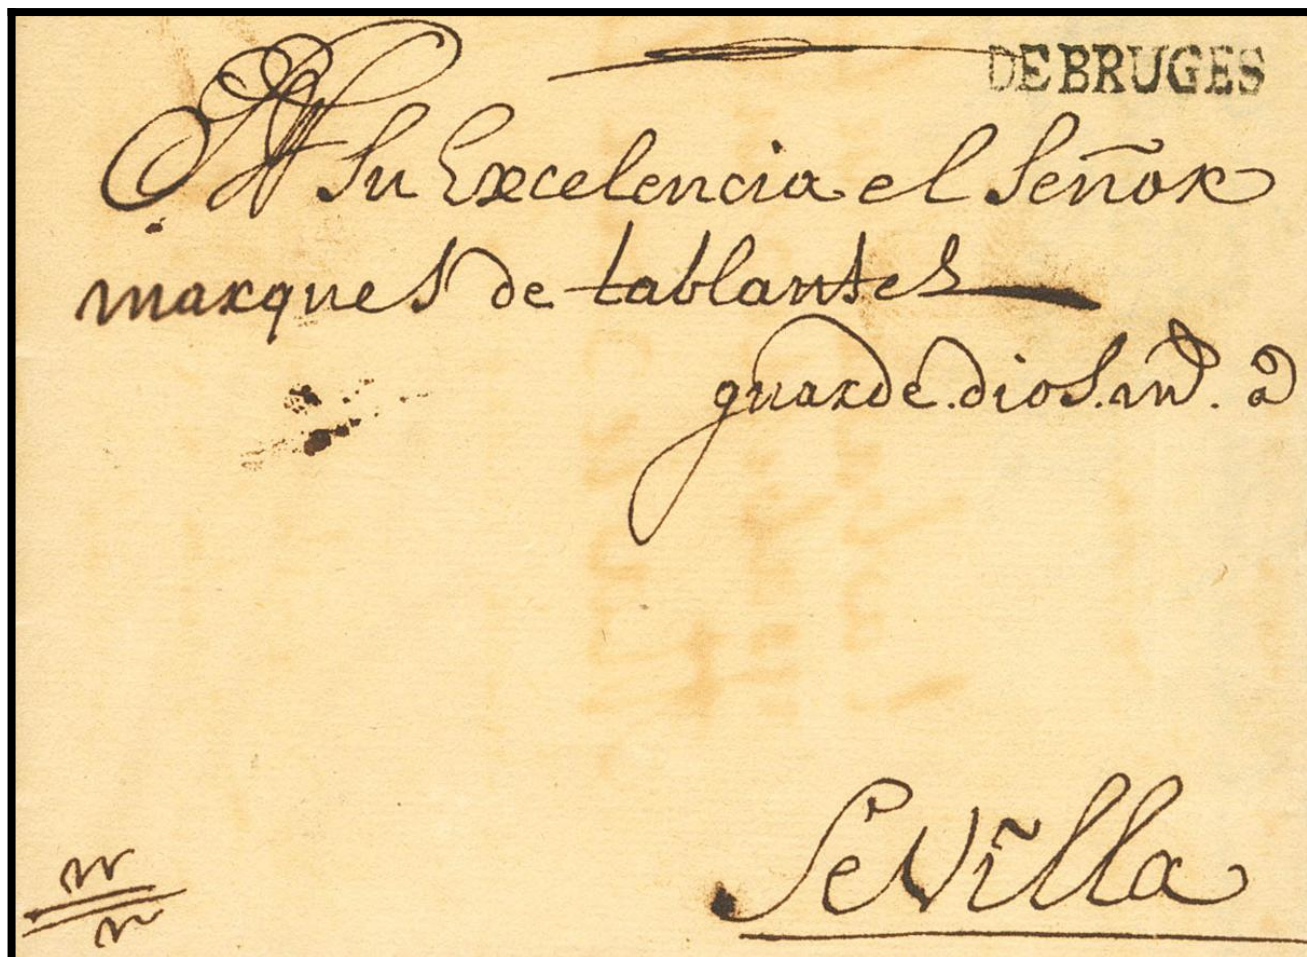 DE BRUGES
A Su Excelencia el Señor
marques de tablantes
guarde. dios. m.
Sevilla